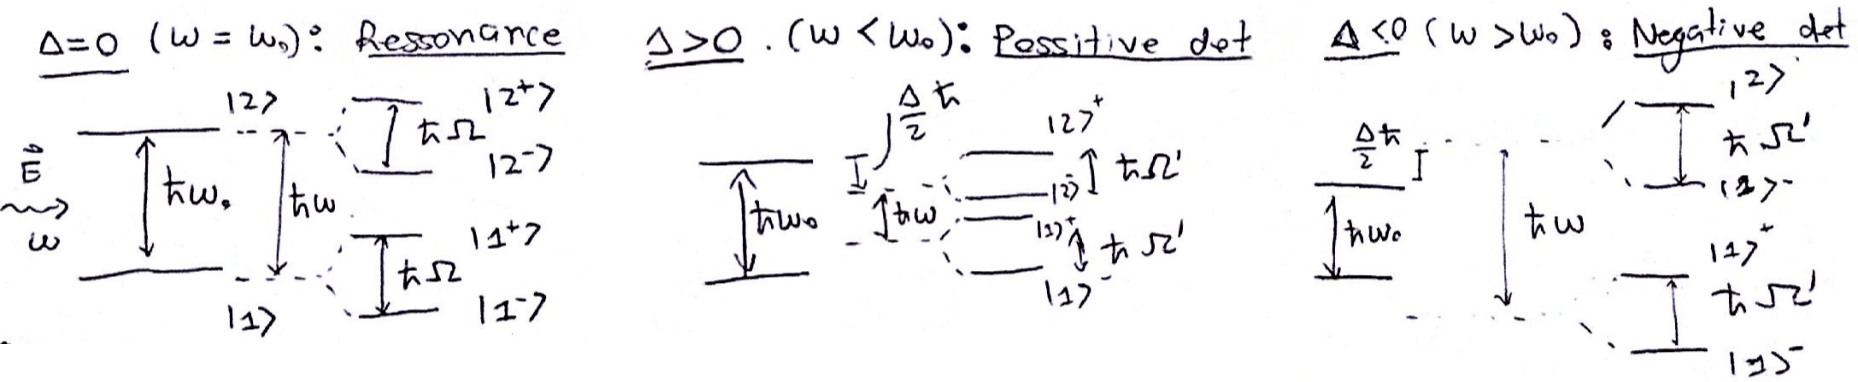 Δ=0 (ω = ω₀): Ressonance
|2>
|2⁺>
ħΩ
|2⁻>
E⃗
ω
ħω₀
ħω
|1⁺>
ħΩ
|1>
|1⁻>
Δ>0. (ω < ω₀): Possitive det
Δ/2 ħ
|2>⁺
ħω₀
ħω
|2>⁻
ħΩ'
|1>⁺
ħΩ'
|1>⁻
Δ<0 (ω > ω₀): Negative det
|2>
Δħ/2
ħΩ'
|2>⁻
ħω₀
ħω
|1>⁺
ħΩ'
|1>⁻